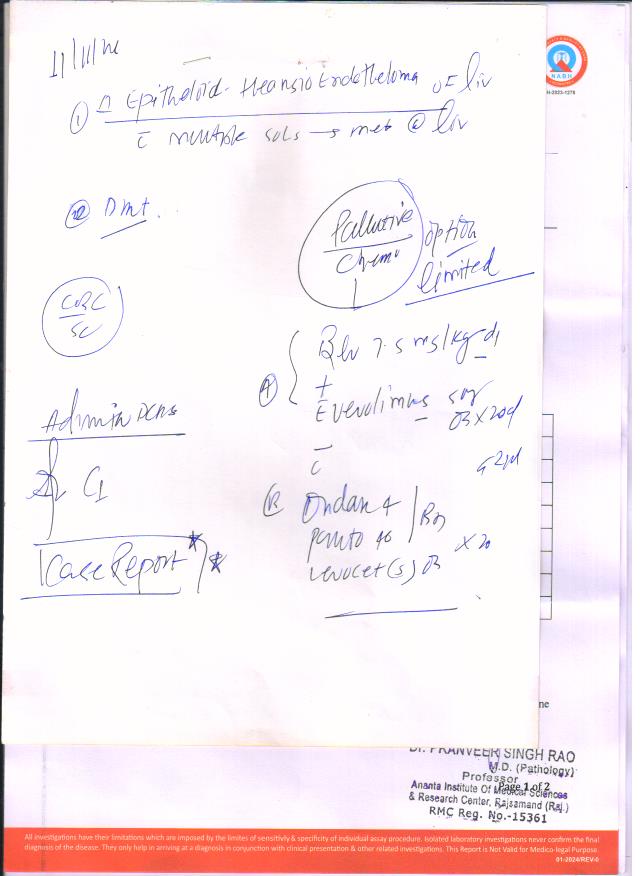 ① Δ Epitheloid - Heansio Endotheloma of liv
c̄ multiple SOLs → met @ liv
② Dmt.
Pallative
Chemo
option
limited
CBC
SC
(A)
Bev 7.5 mg/kg d1
+
Everolimus 5mg
OD x 20d
c̄
(B) Ondan 4
panto 40
levocet (5) OD
x 20
Admin
C1
Case Report
NABH
DR. PRANVEER SINGH RAO
M.D. (Pathology)
Professor
Page 1 of 2
Ananta Institute Of Medical Sciences
& Research Center, Rajsamand (Raj.)
RMC Reg. No.-15361
All investigations have their limitations which are imposed by the limites of sensitivly & specificity of individual assay procedure. Isolated laboratory investigations never confirm the final
diagnosis of the disease. They only help in arriving at a diagnosis in conjunction with clinical presentation & other related investigations. This Report is Not Valid for Medico-legal Purpose.
01-2024/REV-0